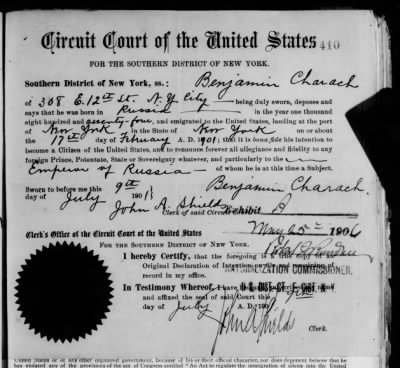 Circuit Court of the United States
410
FOR THE SOUTHERN DISTRICT OF NEW YORK.
Southern District of New York, ss.: Benjamin Charach
of 308 E. 12th St. N.Y. City being duly sworn, deposes and
says that he was born in Russia in the year one thousand
eight hundred and seventy-four, and emigrated to the United States, landing at the port
of New York in the State of New York on or about
the 17th day of February A. D. 1901; that it is bona fide his intention to
become a Citizen of the United States, and to renounce forever all allegiance and fidelity to any
foreign Prince, Potentate, State or Sovereignty whatever, and particularly to the
Emperor of Russia of whom he is at this time a Subject.
Sworn to before me this 9th Benjamin Charach
day of July 190
John A. Shields
Clerk of said Circuit Exhibit A
May 25 1906
Clerk's Office of the Circuit Court of the United States
FOR THE SOUTHERN DISTRICT OF NEW YORK.
I hereby Certify, that the foregoing is a true copy of
Original Declaration of Intention remaining of
NATURALIZATION COMMISSIONER,
record in my office.
In Testimony Whereof, I have name
and affixed the seal of said Court this
day of July A. D. 190
John A. Shields
Clerk.
United States or of any other organized government, because of his or their official character, nor does deponent believe that he
has violated any of the provision of the act of Congress entitled "An Act to regulate the immigration of aliens into the United